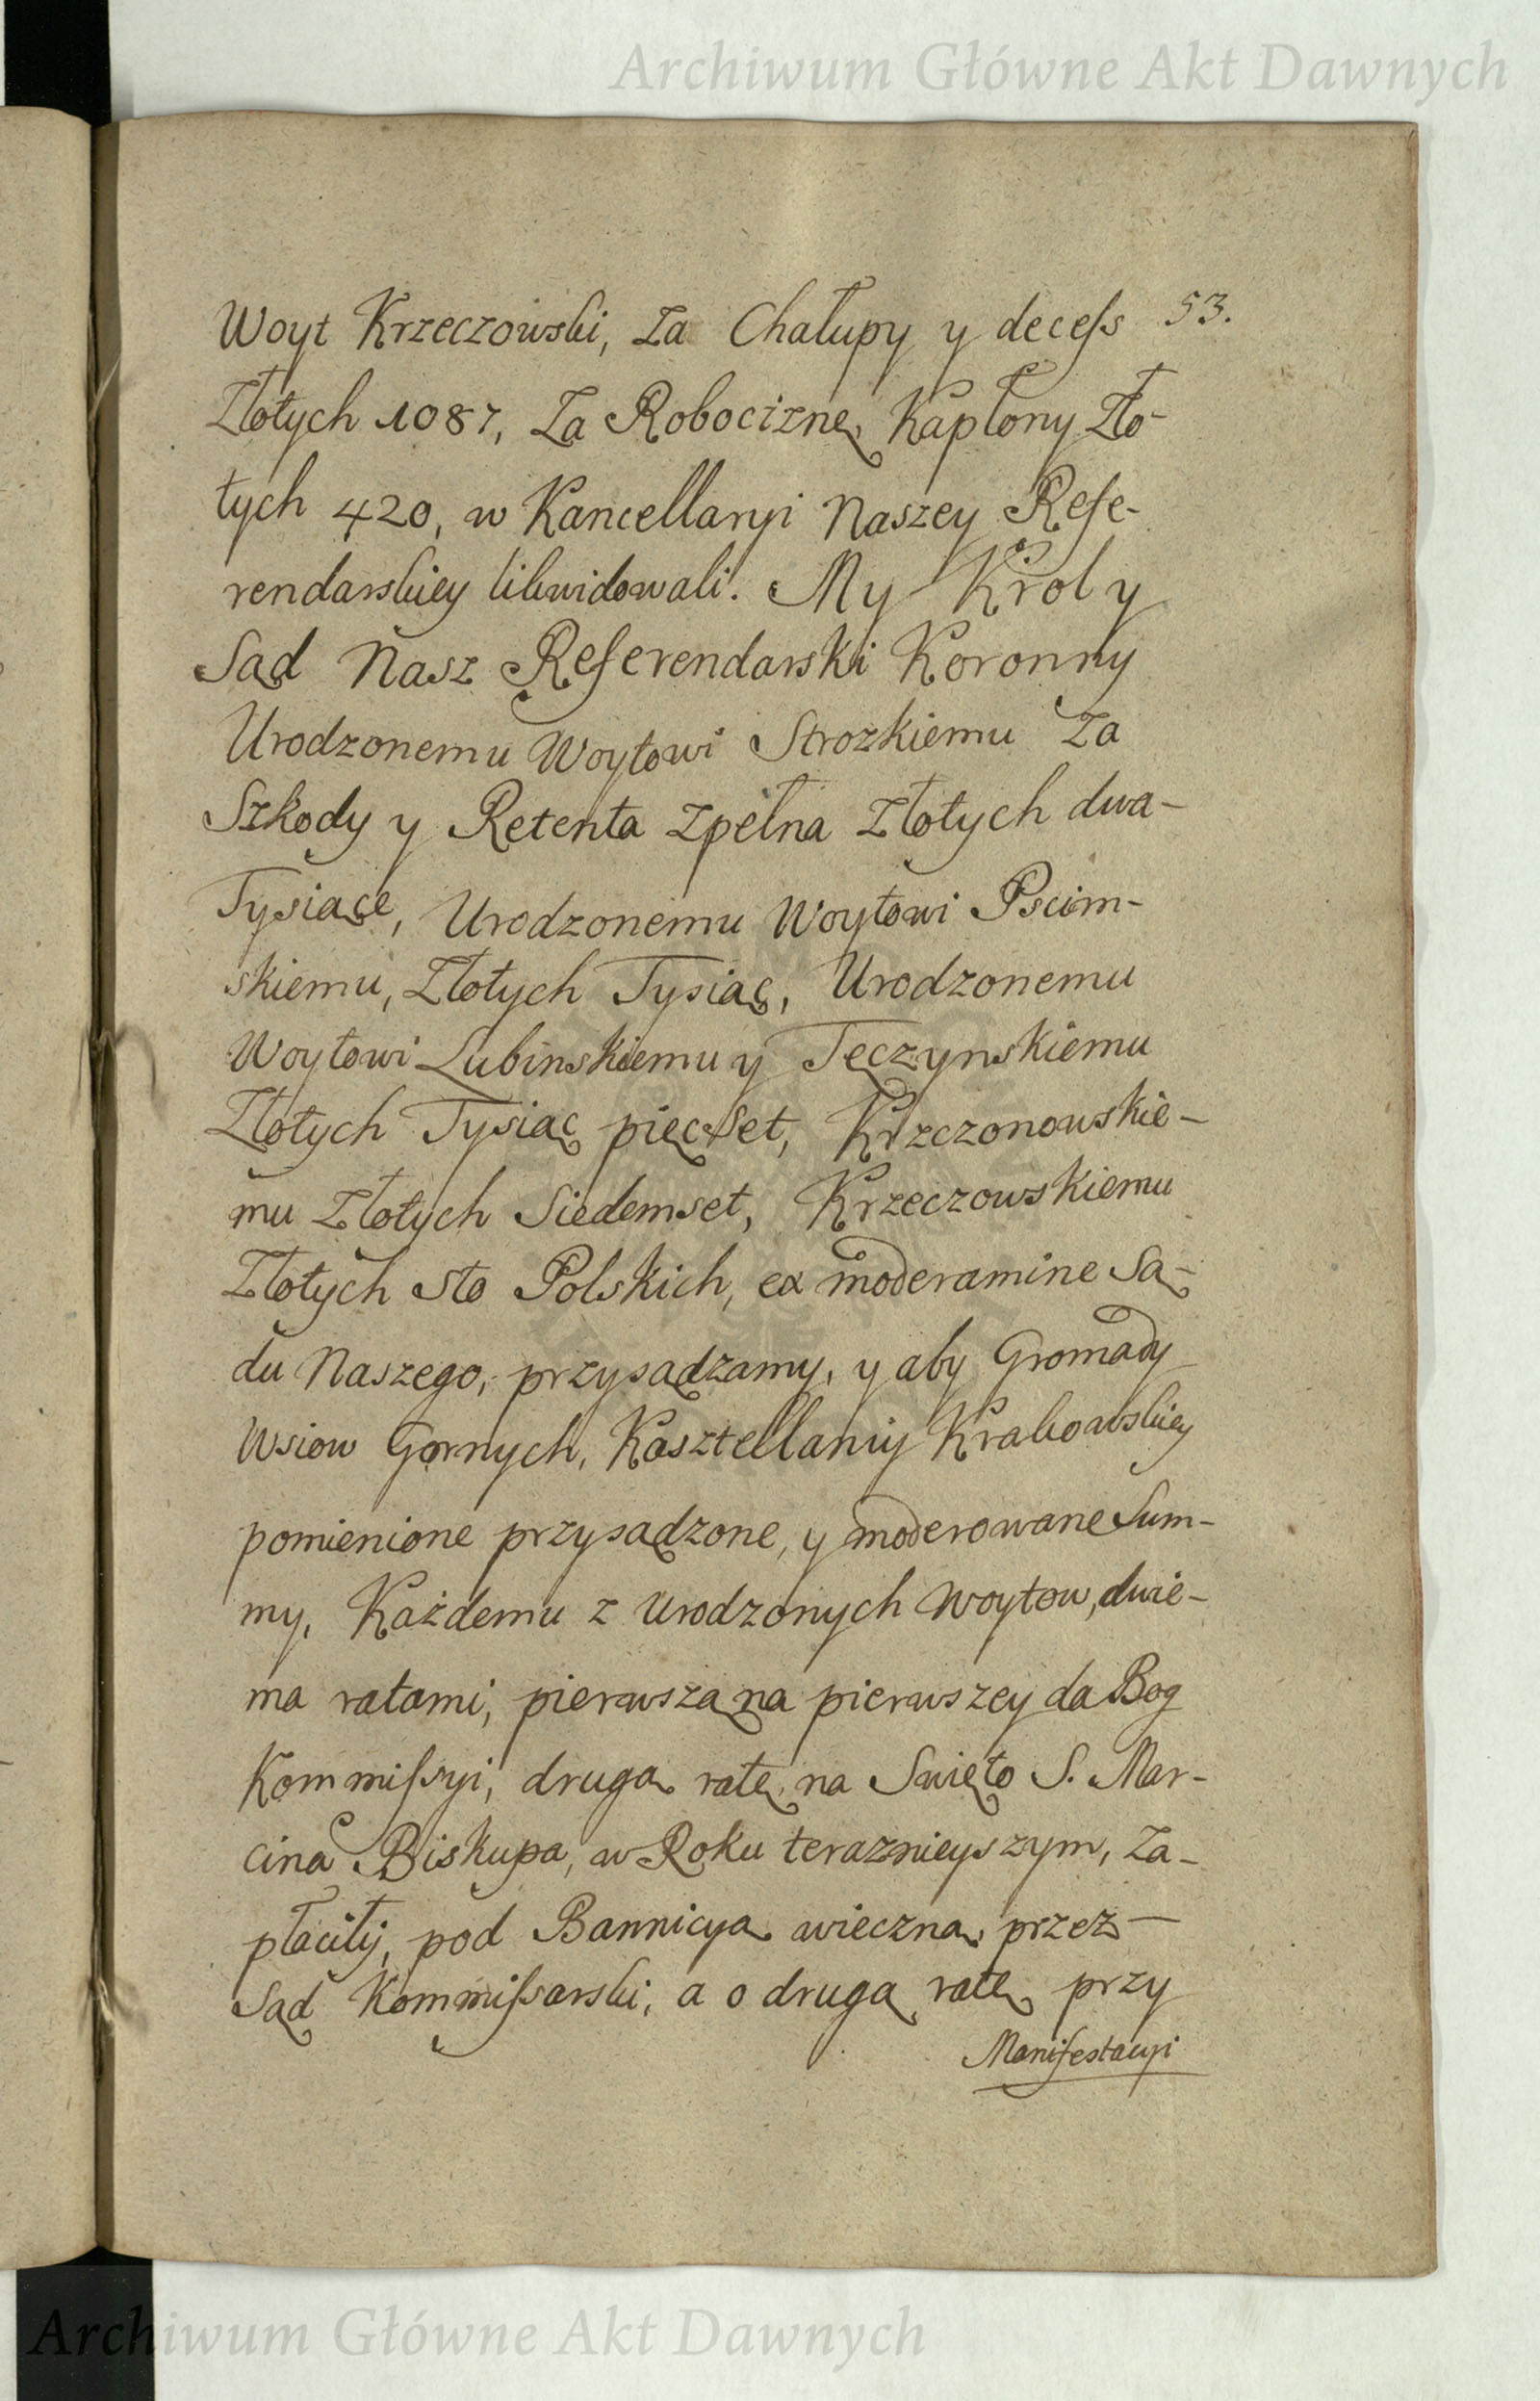 Archiwum Główne Akt Dawnych
53.
Woyt Krzeczowski, Za Chałupy y decess
Złotych 1087, Za Robociznę, Kapłony Zło-
tych 420, w Kancellaryi Naszey Refe-
rendarskiey likwidowali. My Krol y
Sąd Nasz Referendarski Koronny
Urodzonemu Woytowi Strozkiemu Za
Szkody y Retenta Zpełna Złotych dwa-
Tysiące, Urodzonemu Woytowi Pscim-
skiemu, Złotych Tysiąc, Urodzonemu
Woytowi Lubinskiemu y Tęczynskiemu
Złotych Tysiąc pięcSet, Krzczonowskie-
mu Złotych Siedemset, Krzeczowskiemu
Złotych sto Polskich, ex moderamine Są-
du Naszego, przysądzamy, y aby Gromady
Wsiow Gornych, Kasztellaniy Krakowskiey
pomienione przysądzone, y moderowane Sum-
my, Każdemu z Urodzonych Woytow, dwie-
ma ratami, pierwszą na pierwszey da Bog
Kommissyi, drugą ratę na Swięto S. Mar-
cina Biskupa, w Roku teraznieyszym, Za-
płaciły, pod Bannicyą wieczną, przez
Sąd Kommissarski, a o drugą ratę przy
Manifestacyi
Archiwum Główne Akt Dawnych